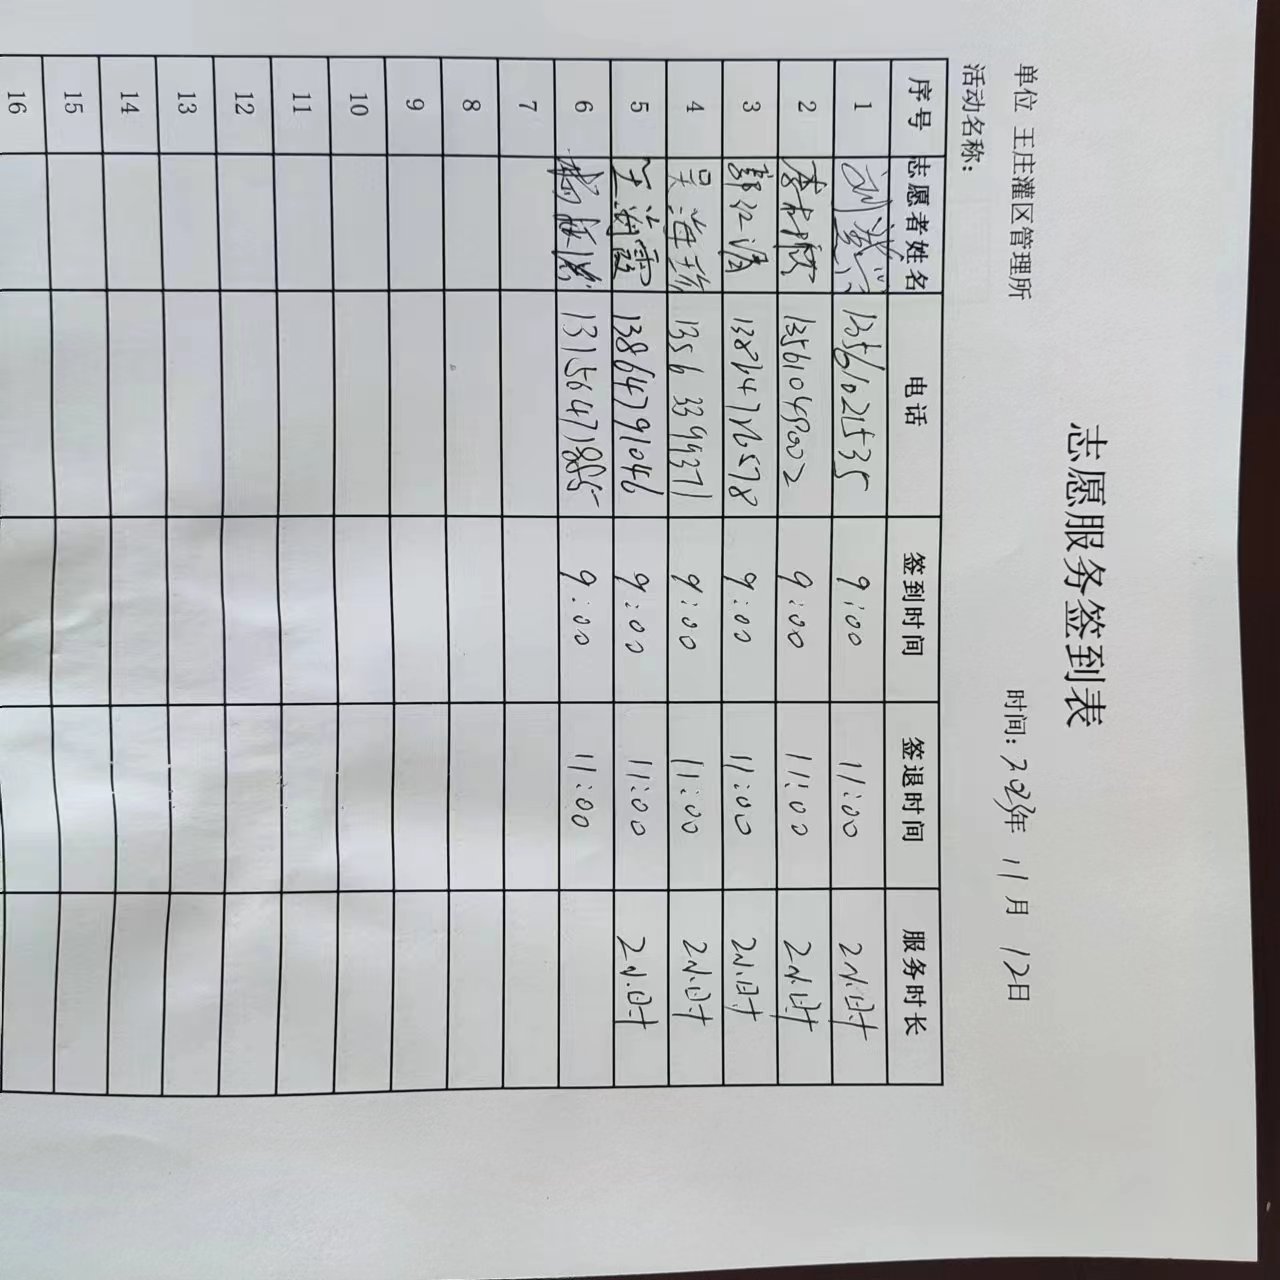 志愿服务签到表
单位 王庄灌区管理所 时间: 2023年 11月 12日
活动名称:
序号 志愿者姓名 电话 签到时间 签退时间 服务时长
1 13561021535 9:00 11:00 2小时
2 13561049002 9:00 11:00 2小时
3 9:00 11:00 2小时
4 吴海珍 13563399371 9:00 11:00 2小时
5 王海霞 13864791046 9:00 11:00 2小时
6 9:00 11:00
7
8
9
10
11
12
13
14
15
16